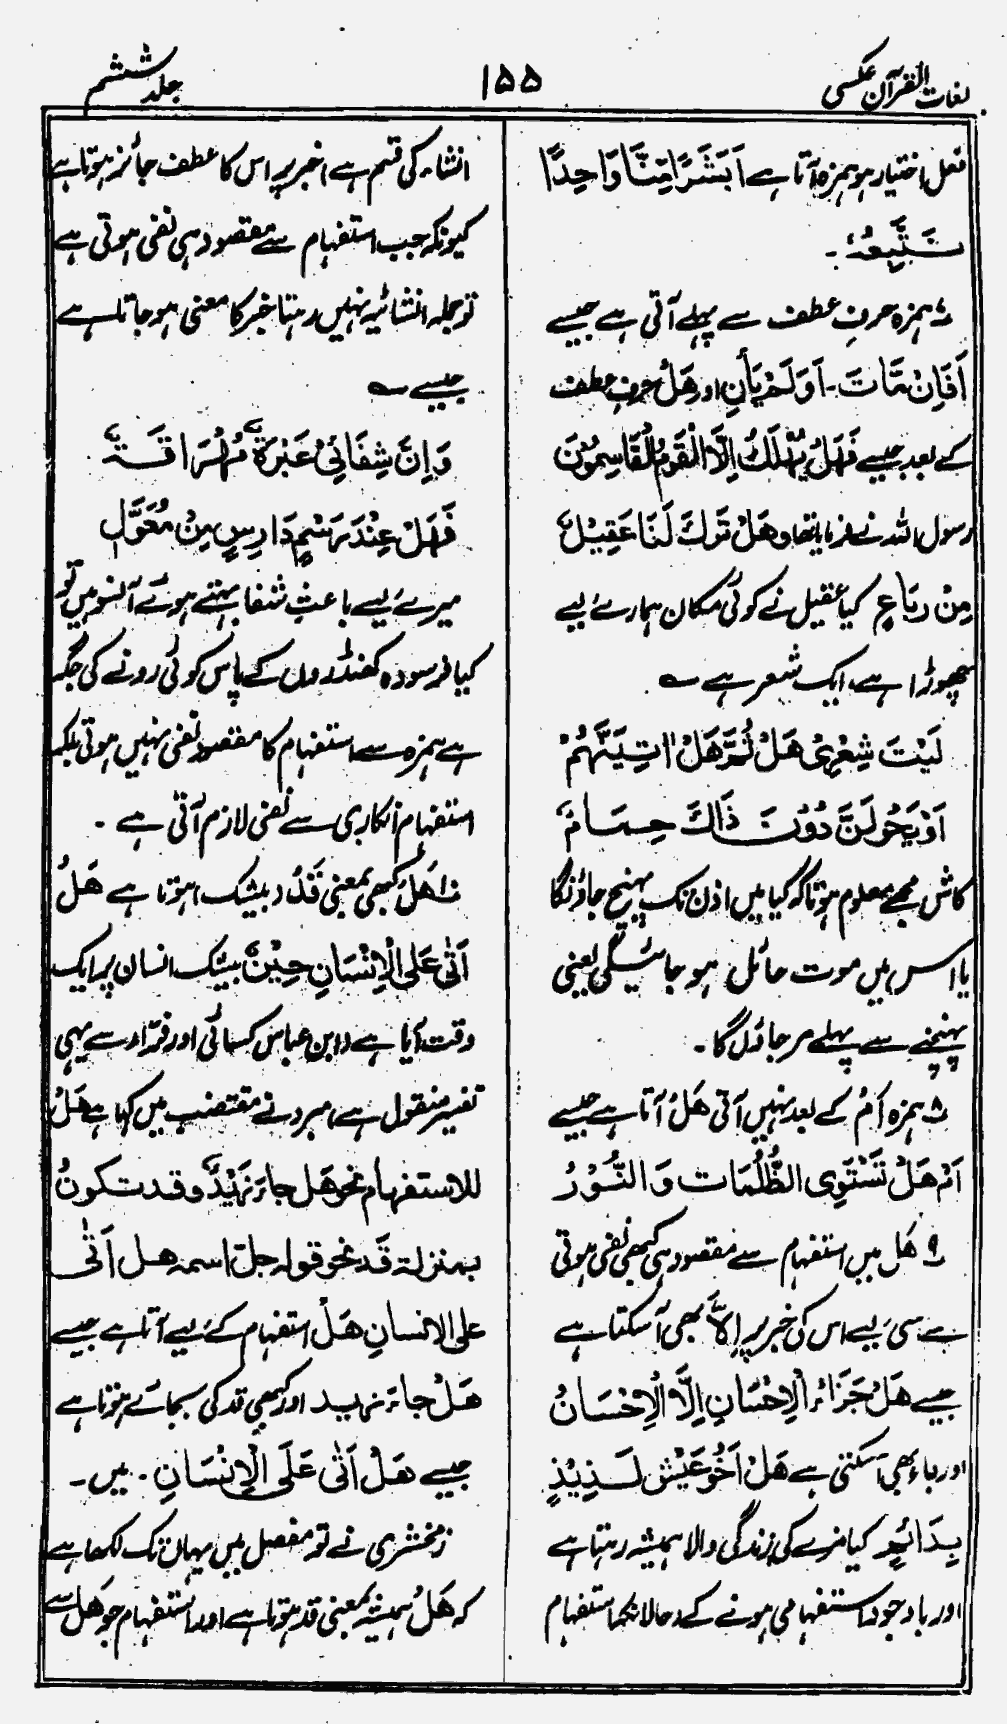 لغات القرآن عکسی
۱۵۵
جلد ششم
فعل اختیار ہو ہمزہ آتا ہے اَبَشَرًا مِّنَّا وَاحِدًا
نَتَّبِعُهٗ ۔
۷ ہمزہ حرفِ عطف سے پہلے آتی ہے جیسے
اَفَاِنْ مَّاتَ ۔ اَوَلَمْ يَأْنِ اور هَلْ حرفِ عطف
کے بعد جیسے فَهَلْ يُهْلَكُ اِلَّا الْقَوْمُ الْفَاسِقُوْنَ
رسول اللہ نے فرمایا تھا وهَلْ تَرَكَ لَنَا عَقِيْلٌ
مِنْ رِبَاعٍ کیا عقیل نے کوئی مکان ہمارے لیے
چھوڑا ہے، ایک شعر ہے ؎
لَيْتَ شِعْرِىْ هَلْ ثُمَّ هَلْ اٰتِيَنَّهُمْ
اَوْ يَحُوْلَنَّ دُوْنَ ذَاكَ حِمَامٌ
کاش مجھے معلوم ہوتا کہ کیا میں اُن تک پہنچ جاؤنگا
یا اس میں موت حائل ہو جائیگی یعنی
پہنچنے سے پہلے مر جاؤں گا ۔
۸ ہمزہ اَمْ کے بعد نہیں آتی هَلْ آتا ہے جیسے
اَمْ هَلْ تَسْتَوِى الظُّلُمَات وَالنُّوْرُ
۹ هَل میں استفہام سے مقصود ہی کبھی نفی ہوتی
ہے سی لیے اس کی خبر پر اِلَّا بھی آ سکتا ہے
جیسے هَلْ جَزَاءُ الْاِحْسَانِ اِلَّا الْاِحْسَانُ
اور باء بھی آ سکتی ہے هَلْ اَخُوْ عَيْشٍ لَذِيْذٍ
بِدَائِمٍ کیا مزے کی زندگی والا ہمیشہ رہتا ہے
اور باوجود استفہامی ہونے کے (حالانکہ استفہام
انشاء کی قسم ہے) خبر پر اس کا عطف جائز ہوتا ہے
کیونکہ جب استفہام سے مقصود ہی نفی ہوتی ہے
تو جملہ انشائیہ نہیں رہتا خبر کا معنی ہو جاتا ہے
جیسے ؎
وَاِنَّ شِفَائِىْ عَبْرَةٌ مُهْرَاقَةٌ
فَهَلْ عِنْدَ رَسْمٍ دَارِسٍ مِنْ مُعَوَّلِ
میرے لیے باعثِ شفا بہتے ہوئے آنسو ہیں تو
کیا فرسودہ کھنڈروں کے پاس کوئی رونے کی جگہ
ہے ہمزہ سے استفہام کا مقصود نفی نہیں ہوتی بلکہ
استفہام انکاری سے نفی لازم آتی ہے ۔
۱۰ هَلْ کبھی بمعنی قَدْ (بیشک) ہوتا ہے هَلْ
اَتٰى عَلَى الْاِنْسَانِ حِيْنٌ بیشک انسان پر ایک
وقت آیا ہے (ابن عباس کسائی اور فرّاء سے یہی
تفسیر منقول ہے، مبرد نے مقتضب میں کہا ہے هَلْ
للاستفهام نحو هل جاءَ زَيْدٌ وقد تكونُ
بمنزلة قَد نحو قوله جلّ اسمه هل اَتٰى
على الانسانِ هَلْ استفہام کے لیے آتا ہے جیسے
هَلْ جاءَ زيد اور کبھی قد کی بجائے ہوتا ہے
جیسے هَلْ اَتٰى عَلَى الْاِنْسَانِ ۔ میں ۔
زمخشری نے تو مفصل میں یہاں تک لکھا ہے
کہ هَلْ ہمیشہ بمعنی قد ہوتا ہے اور استفہام جو هَل سے